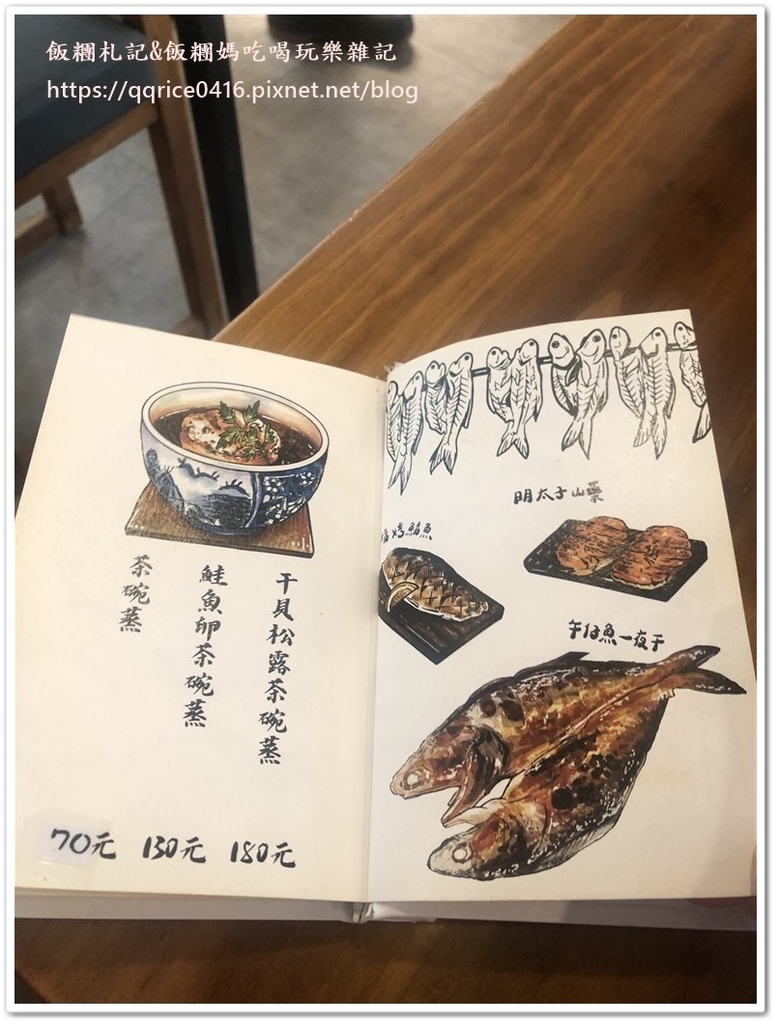 飯糰札記&飯糰媽吃喝玩樂雜記
https://qqrice0416.pixnet.net/blog
干貝松露茶碗蒸
鮭魚卵茶碗蒸
茶碗蒸
70元 130元 180元
明太子山藥
烤鯖魚
午仔魚一夜干